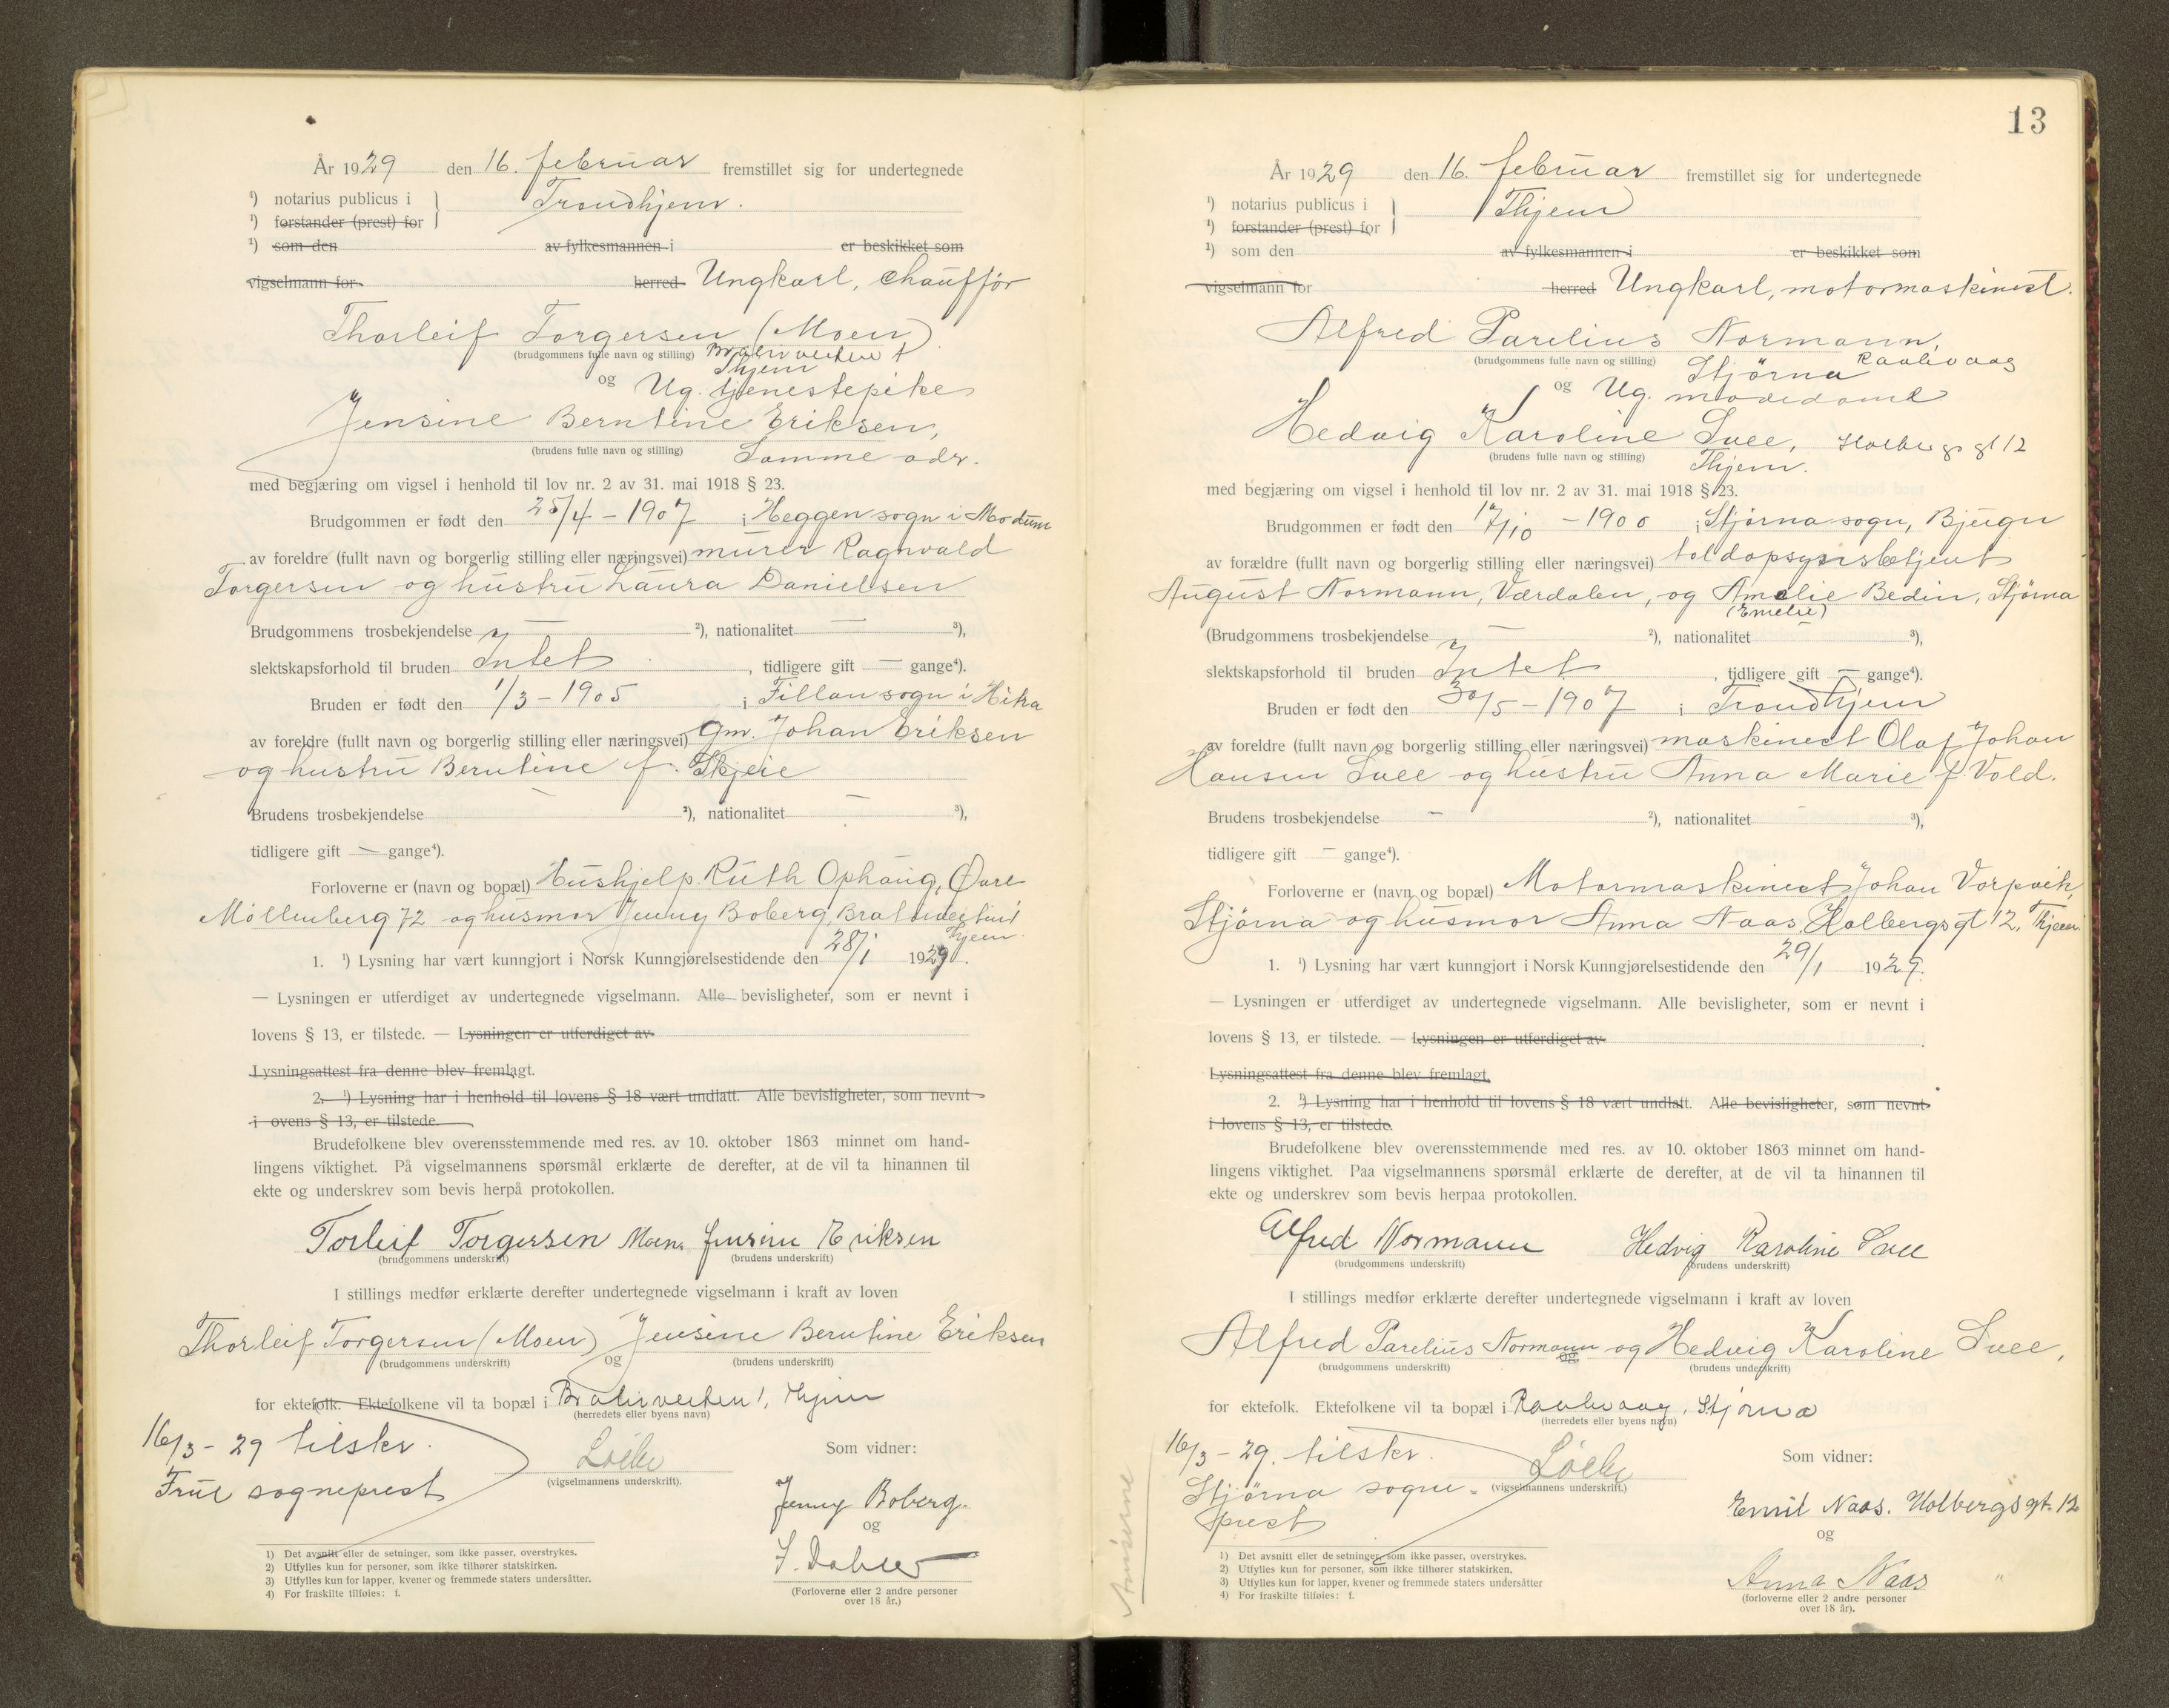 År 1929 den 16. februar fremstillet sig for undertegnede
¹) notarius publicus i } Trondhjem.
¹) forstander (prest) for
¹) som den av fylkesmannen i er beskikket som
vigselmann for herred Ungkarl, chauffør
Thorleif Torgersen (Moen)
(brudgommens fulle navn og stilling)
Thjem
og Ug. tjenestepike
Jensine Berntine Eriksen,
(brudens fulle navn og stilling) Samme adr.
med begjæring om vigsel i henhold til lov nr. 2 av 31. mai 1918 § 23.
Brudgommen er født den 25/4 - 1907 i Heggen sogn i Modum
av foreldre (fullt navn og borgerlig stilling eller næringsvei) murer Ragnvald
Torgersen og hustru Laura Danielsen
Brudgommens trosbekjendelse — ²), nationalitet — ³),
slektskapsforhold til bruden Intet, tidligere gift — gange⁴).
Bruden er født den 1/3 - 1905 i Fillan sogn i Hitra
av foreldre (fullt navn og borgerlig stilling eller næringsvei) Gm. Johan Eriksen
og hustru Berntine f. Skjeie
Brudens trosbekjendelse — ²), nationalitet — ³),
tidligere gift — gange⁴).
Forloverne er (navn og bopæl) Hushjelp Ruth Ophaug, Øvre
Møllenberg 72 og husmor Jenny Boberg,
Thjem.
1. ¹) Lysning har vært kunngjort i Norsk Kunngjørelsestidende den 28/1 1929.
— Lysningen er utferdiget av undertegnede vigselmann. Alle bevisligheter, som er nevnt i
lovens § 13, er tilstede. — Lysningen er utferdiget av
Lysningsattest fra denne blev fremlagt.
2. ¹) Lysning har i henhold til lovens § 18 vært undlatt. Alle bevisligheter, som nevnt
i ovens § 13, er tilstede.
Brudefolkene blev overensstemmende med res. av 10. oktober 1863 minnet om hand-
lingens viktighet. På vigselmannens spørsmål erklærte de derefter, at de vil ta hinannen til
ekte og underskrev som bevis herpå protokollen.
Torleif Torgersen Moen. Jensine Eriksen
(brudgommens underskrift) (brudens underskrift)
I stillings medfør erklærte derefter undertegnede vigselmann i kraft av loven
Thorleif Torgersen (Moen) og Jensine Berntine Eriksen
(brudgommens underskrift) (brudens underskrift)
for ektefolk. Ektefolkene vil ta bopæl i Thjem
(herredets eller byens navn)
16/3 - 29 tilskr. Som vidner:
sogneprest
(vigselmannens underskrift).
Jenny Boberg.
og
1) Det avsnitt eller de setninger, som ikke passer, overstrykes.
2) Utfylles kun for personer, som ikke tilhører statskirken.
3) Utfylles kun for lapper, kvener og fremmede staters undersåtter.
4) For fraskilte tilføies: f.
(Forloverne eller 2 andre personer
over 18 år.)
13
År 1929 den 16. februar fremstillet sig for undertegnede
¹) notarius publicus i } Thjem
¹) forstander (prest) for
¹) som den av fylkesmannen i er beskikket som
vigselmann for herred Ungkarl, motormaskinist.
Alfred Parelius Normann,
(brudgommens fulle navn og stilling) Stjørna
og Ug. modedame
Hedvig Karoline Svee, Holbergs gt 12
(brudens fulle navn og stilling) Thjem.
med begjæring om vigsel i henhold til lov nr. 2 av 31. mai 1918 § 23.
Brudgommen er født den /10 - 1900 i Stjørna sogn, Bjugn
av forældre (fullt navn og borgerlig stilling eller næringsvei) toldopsynsbetjent
August Normann, Værdalen, og Amalie Bedin, Stjørna
(Emelie)
(Brudgommens trosbekjendelse — ²), nationalitet — ³),
slektskapsforhold til bruden Intet, tidligere gift — gange⁴).
Bruden er født den 30/5 - 1907 i Trondhjem
av foreldre (fullt navn og borgerlig stilling eller næringsvei) maskinist Olaf Johan
Hansen Svee og hustru Anna Marie f. Vold.
Brudens trosbekjendelse — ²), nationalitet ³),
tidligere gift — gange⁴).
Forloverne er (navn og bopæl) Motormaskinist Johan Vorpvik,
Stjørna og husmor Anna Naas, Holbergsgt 12, Thjem.
1. ¹) Lysning har vært kunngjort i Norsk Kunngjørelsestidende den 29/1 1929.
— Lysningen er utferdiget av undertegnede vigselmann. Alle bevisligheter, som er nevnt i
lovens § 13, er tilstede. — Lysningen er utferdiget av
Lysningsattest fra denne blev fremlagt.
2. ¹) Lysning har i henhold til lovens § 18 vært undlatt. Alle bevisligheter, som nevnt
i lovens § 13, er tilstede.
Brudefolkene blev overensstemmende med res. av 10. oktober 1863 minnet om hand-
lingens viktighet. Paa vigselmannens spørsmål erklærte de derefter, at de vil ta hinannen til
ekte og underskrev som bevis herpaa protokollen.
Alfred Normann Hedvig Karoline Svee
(brudgommens underskrift) (brudens underskrift)
I stillings medfør erklærte derefter undertegnede vigselmann i kraft av loven
Alfred Parelius Normann og Hedvig Karoline Svee,
(brudgommens underskrift) og (brudens underskrift)
for ektefolk. Ektefolkene vil ta bopæl i Stjørna
(herredets eller byens navn)
16/3 - 29. tilskr. Som vidner:
Stjørna sogne-
prest
(vigselmannens underskrift.)
Emil Naas. Holbergsgt. 12
og
Anna Naas "
1) Det avsnitt eller de setninger, som ikke passer, overstrykes.
2) Utfylles kun for personer, som ikke tilhører statskirken.
3) Utfylles kun for lapper, kvener og fremmede staters undersåtter
4) For fraskilte tilføies: f.
(forloverne eller 2 andre personer
over 18 år).